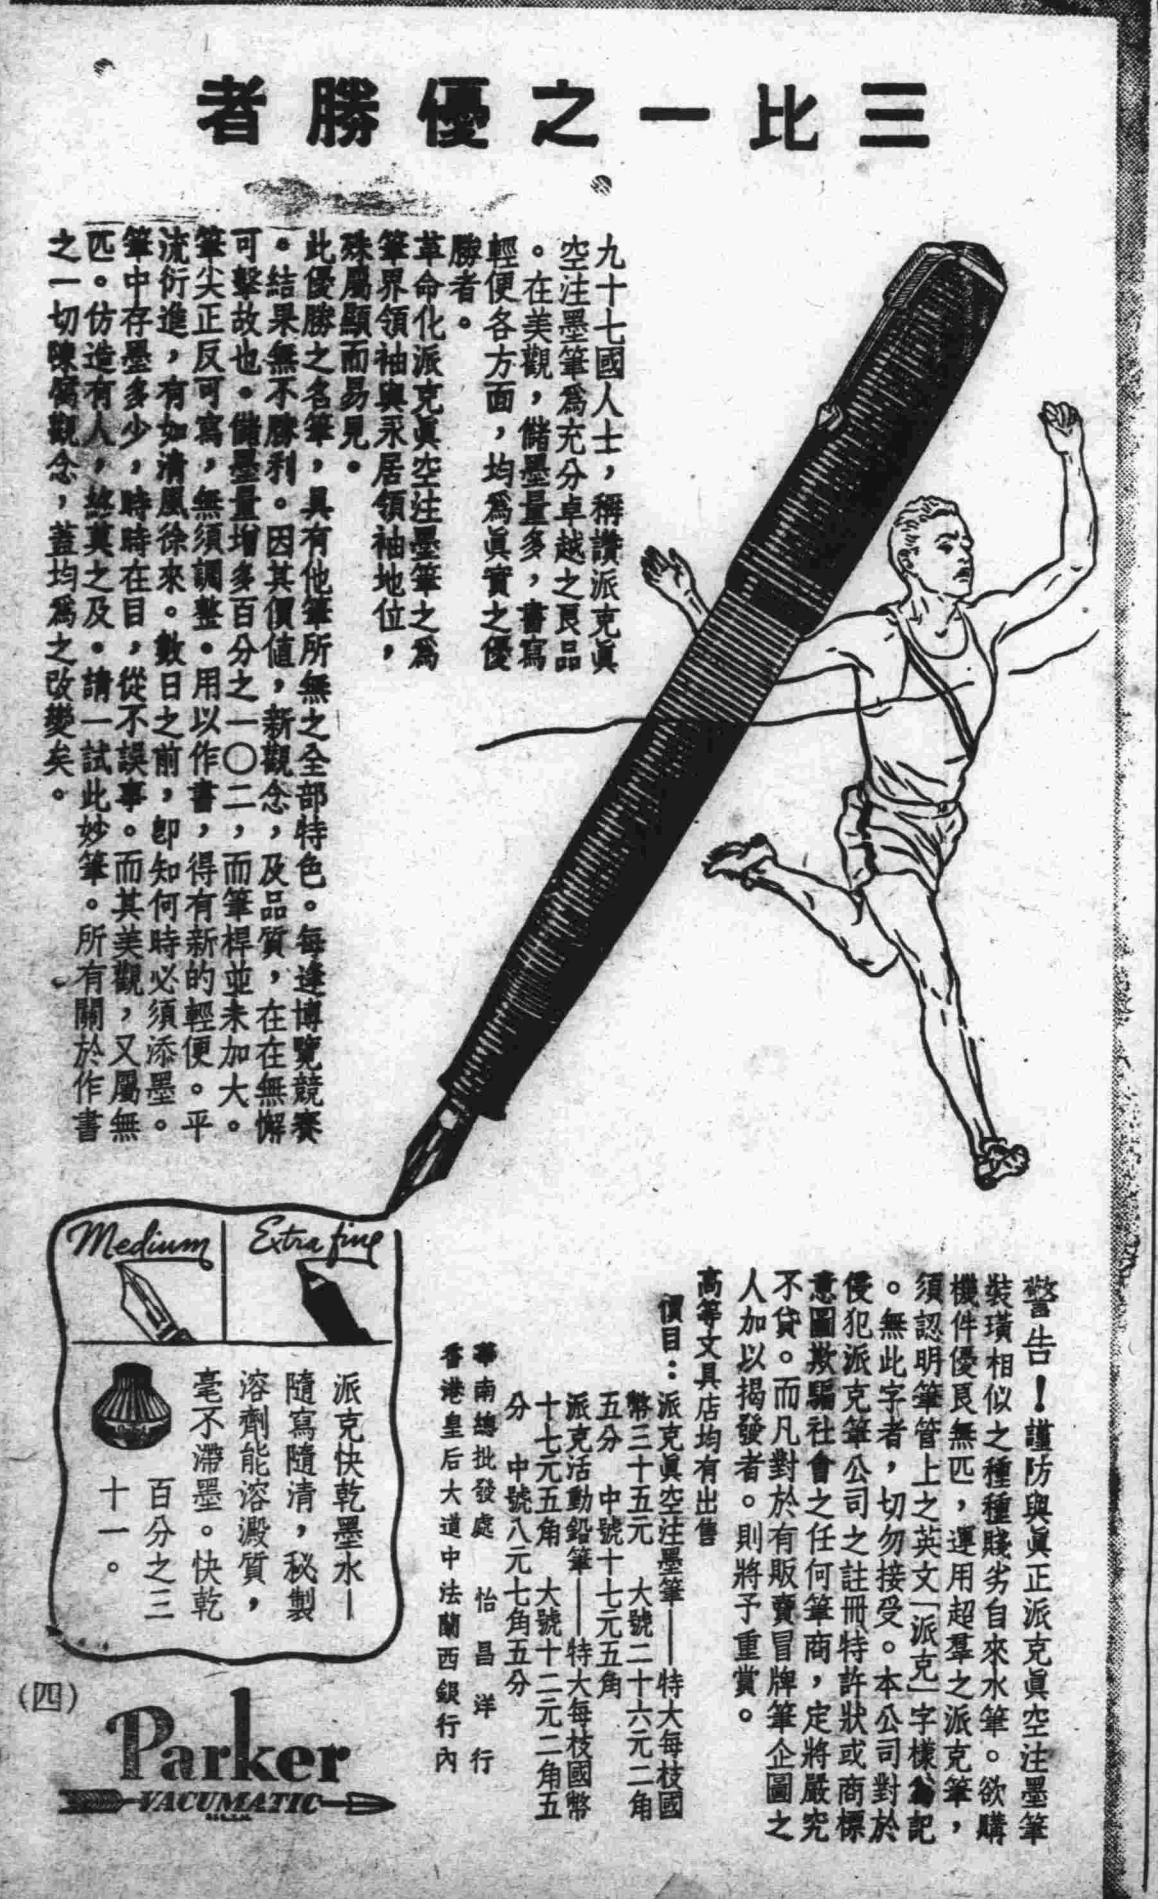 三比一之優勝者
九十七國人士，稱讚派克眞
空注墨筆爲充分卓越之良品
。在美觀，儲墨量多，書寫
輕便各方面，均爲眞實之優
勝者。
革命化派克眞空注墨筆之爲
筆界領袖與永居領袖地位，
殊屬顯而易見。
此優勝之名筆，具有他筆所無之全部特色。每逢博覽競賽
。結果無不勝利。因其價值，新觀念，及品質，在在無懈
可擊故也。儲墨量增多百分之一〇二，而筆桿並未加大。
筆尖正反可寫，無須調整。用以作書，得有新的輕便。平
流衍進，有如清風徐來。數日之前，卽知何時必須添墨。
筆中存墨多少，時時在目，從不誤事。而其美觀，又屬無
匹。仿造有人，終莫之及。請一試此妙筆。所有關於作書
之一切陳腐觀念，蓋均爲之改變矣。
Medium
Extra fine
派克快乾墨水—
隨寫隨清，秘製
溶劑能溶澱質，
毫不滯墨。快乾
百分之三
十一。
警告！謹防與眞正派克眞空注墨筆
裝璜相似之種種賤劣自來水筆。欲購
機件優良無匹，運用超羣之派克筆，
須認明筆管上之英文「派克」字樣爲記
。無此字者，切勿接受。本公司對於
侵犯派克筆公司之註冊特許狀或商標
意圖欺騙社會之任何筆商，定將嚴究
不貸。而凡對於有販賣冒牌筆企圖之
人加以揭發者。則將予重賞。
高等文具店均有出售
價目：派克眞空注墨筆——特大每枝國
幣三十五元 大號二十六元二角
五分 中號十七元五角
派克活動鉛筆——特大每枝國幣
十七元五角 大號十二元二角五
分 中號八元七角五分
華南總批發處 怡昌洋行
香港皇后大道中法蘭西銀行內
(四)
Parker
VACUMATIC